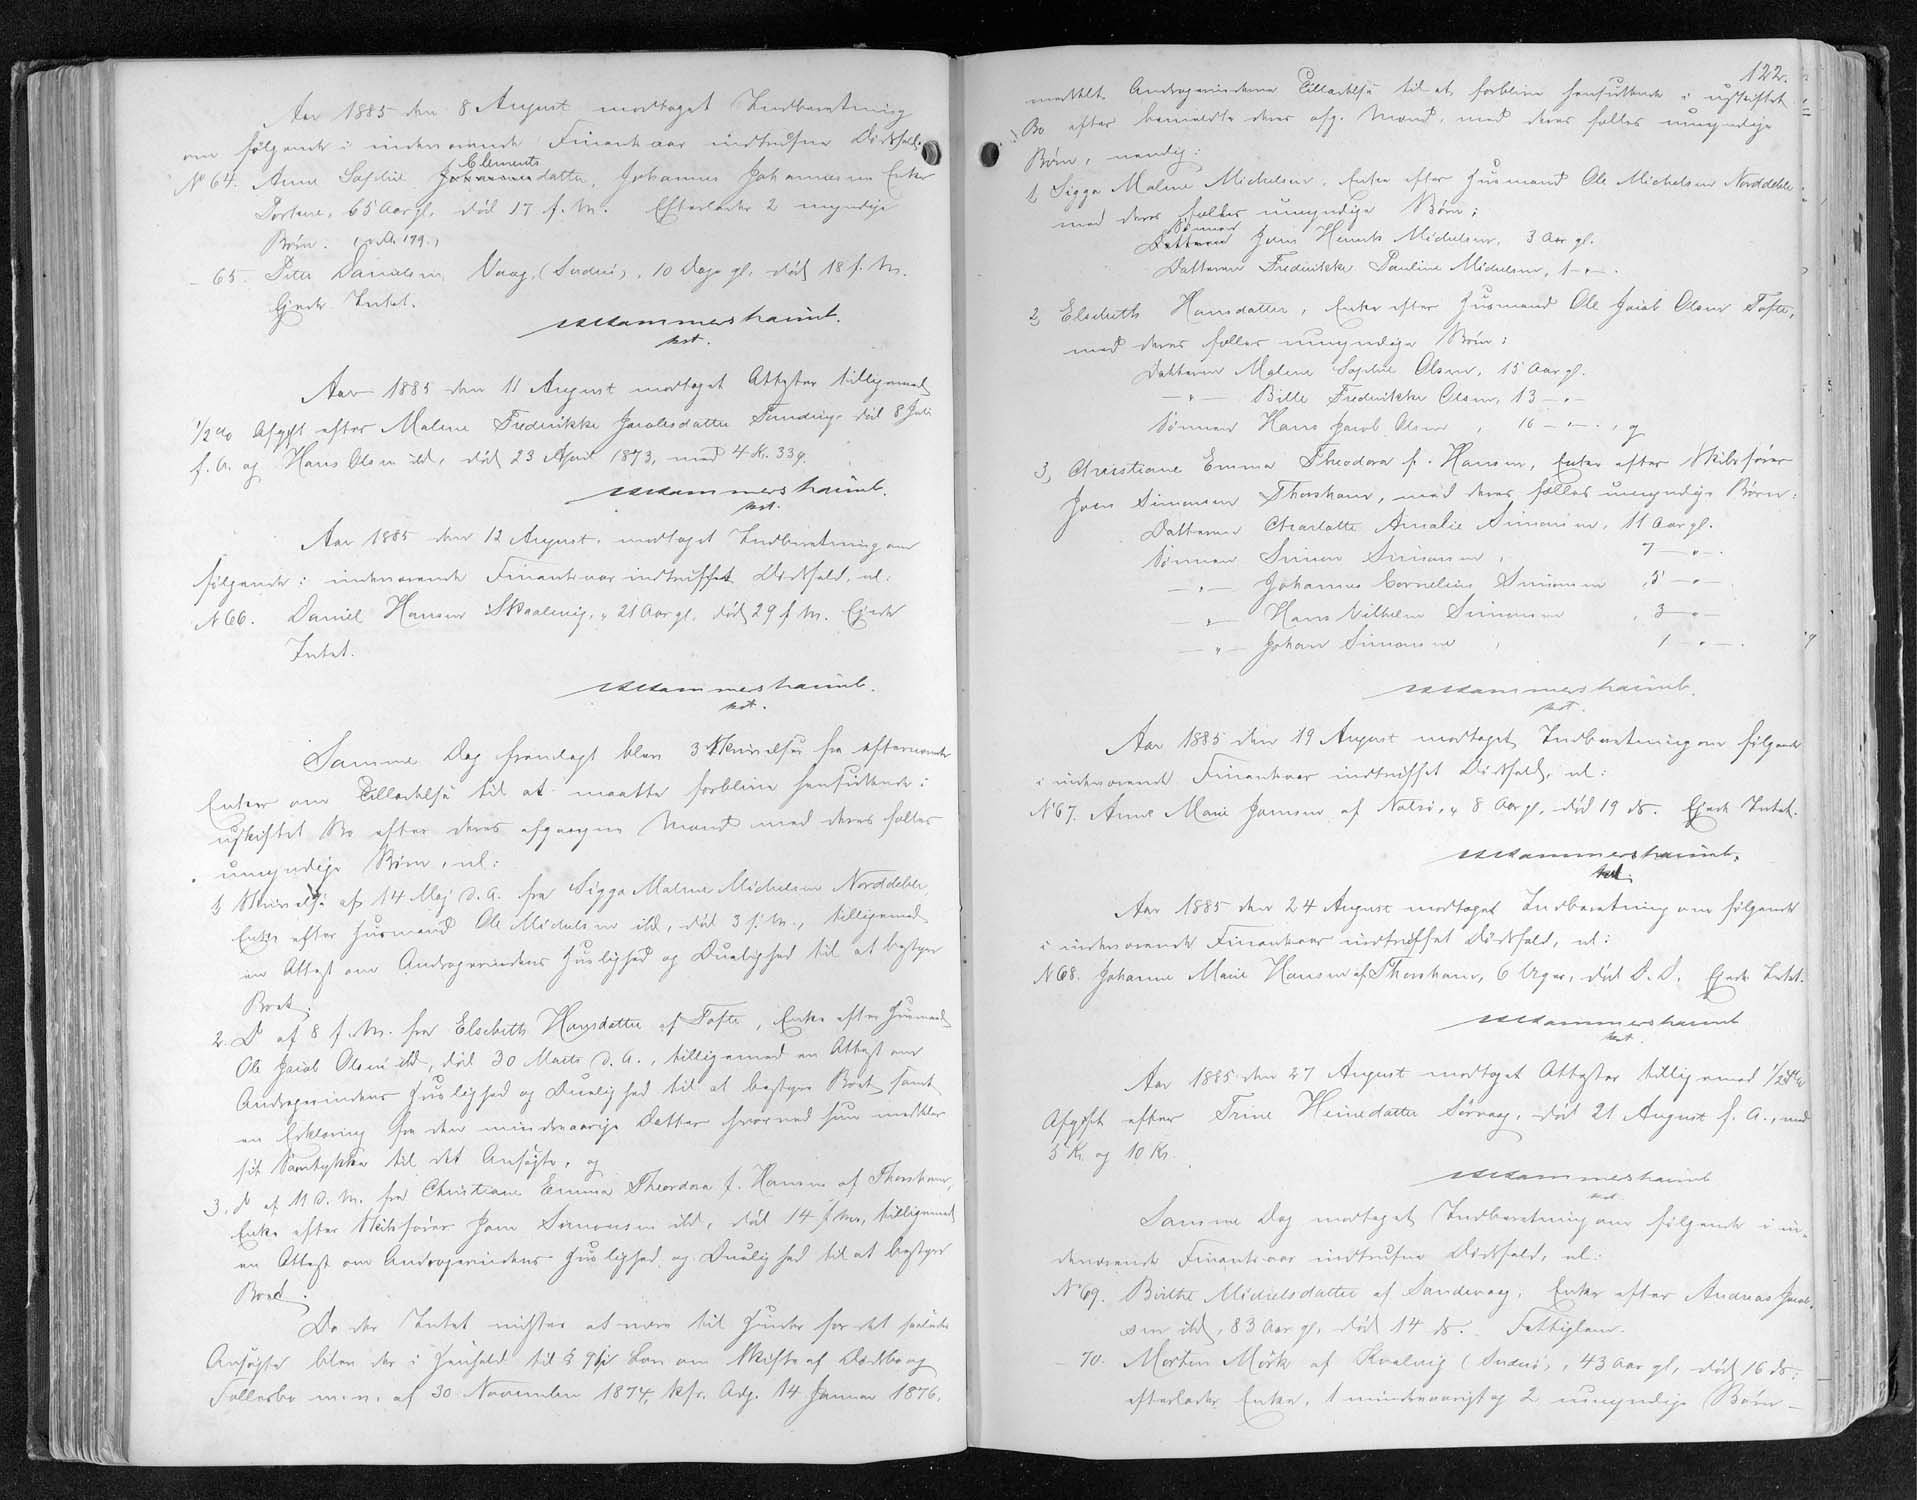 Aar 1885 den 8 August modtaget Indberetning
om følgende i indeværende Finantsaar indtrufne Dødsfald.
No 64. Anne Sophie Clementsdatter, Johannes Johannesens Enke
Porkere, 65 Aar gl. død 17 f. M. Efterlader 2 myndige
Børn. (v. A. 179.)
- 65. Peter Danielsen Vaag, (Suderø), 10 Dage gl. død 18 f. M.
Ejede Intet.
Hammershaimb.
kst.
Aar 1885 den 11 August modtaget Attester tilligemed
1/2 % Afgift efter Malene Frederikke Jacobsdatter død 8 Juli
f. A. og Hans Olsen ibd, død 23 April 1873, med 4 K. 33 Ø.
Hammershaimb.
kst.
Aar 1885 den 12 August, modtaget Indberetning om
følgende i indeværende Finantsaar indtruffet Dødsfald, nl:
N 66. Daniel Hansen Skaalevig, 21 Aar gl. død 29 f. M. Ejede
Intet.
Hammershaimb.
kst.
Samme Dag fremlagt blev 3 Skrivelser fra efternævnte
Enker om Tilladelse til at maatte forblive hensiddende i
uskiftet Bo efter deres afgangne Mænd med deres fælles
umyndige Børn, nl:
1, Skrivelse af 14 Maj d. A. fra Sigga Malene Michelsen Norddeble,
Enke efter Husmand Ole Michelsen ibd, død 3 f. M., tilligemed
en Attest om Andragerindens Huslighed og Duelighed til at bestyre
Boet.
2. Do af 8 f. M. fra Elsebeth Hansdatter af Tofte, Enke efter Husmand
Ole Jacob Olsen ibd, død 30 Marts d. A., tilligemed en Attest om
Andragerindens Huslighed og Duelighed til at bestyre Boet samt
en Erklæring fra den mindreaarige Datter hvorved hun meddeler
sit Samtykke til det Ansøgte, og
3. Do af 11 d. M. fra Christiane Emma Theodora f. Hansen af Thorshavn,
Enke efter Skibsfører Joen Simonsen ibd, død 14 f. M., tilligemed
en Attest om Andragerindens Huslighed og Duelighed til at bestyre
Boet.
Da der Intet vidstes at være til Hinder for det saaledes
Ansøgte blev der i Henhold til § 9 i Lov om Skifte af Dødsbo og
Fællesbo m. v. af 30 November 1874, kfr. Adg. 14 Januar 1876,
122.
meddelt Andragerinderne Tilladelse til at forblive hensiddende i uskiftet
Bo efter bemeldte deres afg. Mænd, med deres fælles umyndige
Børn, nemlig:
1, Sigga Malene Michelsen, Enke efter Husmand Ole Michelsen Norddeble
med deres fælles umyndige Børn;
Sønnen Joen Henrik Michelsen, 3 Aar gl.
Datteren Frederikke Pauline Michelsen, 1 - " - .
2, Elsebeth Hansdatter, Enke efter Husmand Ole Jacob Olsen Tofte,
med deres fælles umyndige Børn:
Datteren Malene Sophie Olsen, 15 Aar gl.
- " - Bille Frederikke Olsen, 13 - " -
Sønnen Hans Jacob Olsen , 16 - " - , og
3, Christiane Emma Theodora f. Hansen, Enke efter Skibsfører
Joen Simonsen Thorshavn, med deres fælles umyndige Børn:
Datteren Charlotte Amalie Simonsen, 11 Aar gl.
Sønnen Simon Simonsen , 7 - " - .
- " - Johannes Cornelius Simonsen , 5 - " -
- " - Hans Vilhelm Simonsen , 3 - " -
- " - Johan Simonsen , 1 - " - .
Hammershaimb.
kst.
Aar 1885 den 19 August modtaget Indberetning om følgende
i indeværende Finantsaar indtruffet Dødsfald, nl:
No 67. Anne Marie Jamsen af Nolsø, 8 Aar gl, død 19 ds. Ejede Intet.
Hammershaimb.
kst.
Aar 1885 den 24 August modtaget Indberetning om følgende
i indeværende Finantsaar indtruffet Dødsfald, nl:
N 68. Johanne Marie Hansen af Thorshavn, 6 Uger, død D. D. Ejede Intet.
Hammershaimb
kst.
Aar 1885 den 27 August modtaget Attester tilligemed 1/2 %
Afgift efter Trine Heinedatter Sørvaag, død 21 August f. A., med
5 Kr. og 10 Kr.
Hammershaimb
kst.
Samme Dag modtaget Indberetning om følgende i in-
deværende Finantsaar indtrufne Dødsfald, nl:
No 69. Birthe Michelsdatter af Sandevaag, Enke efter Andreas Jacob-
sen ibd, 83 Aar gl, død 14 ds. Fattiglem.
- 70. Morten Mørk af Kvalvig (Suderø), 43 Aar gl, død 16 ds;
efterlader Enke, 1 mindreaarigt og 2 umyndige Børn -